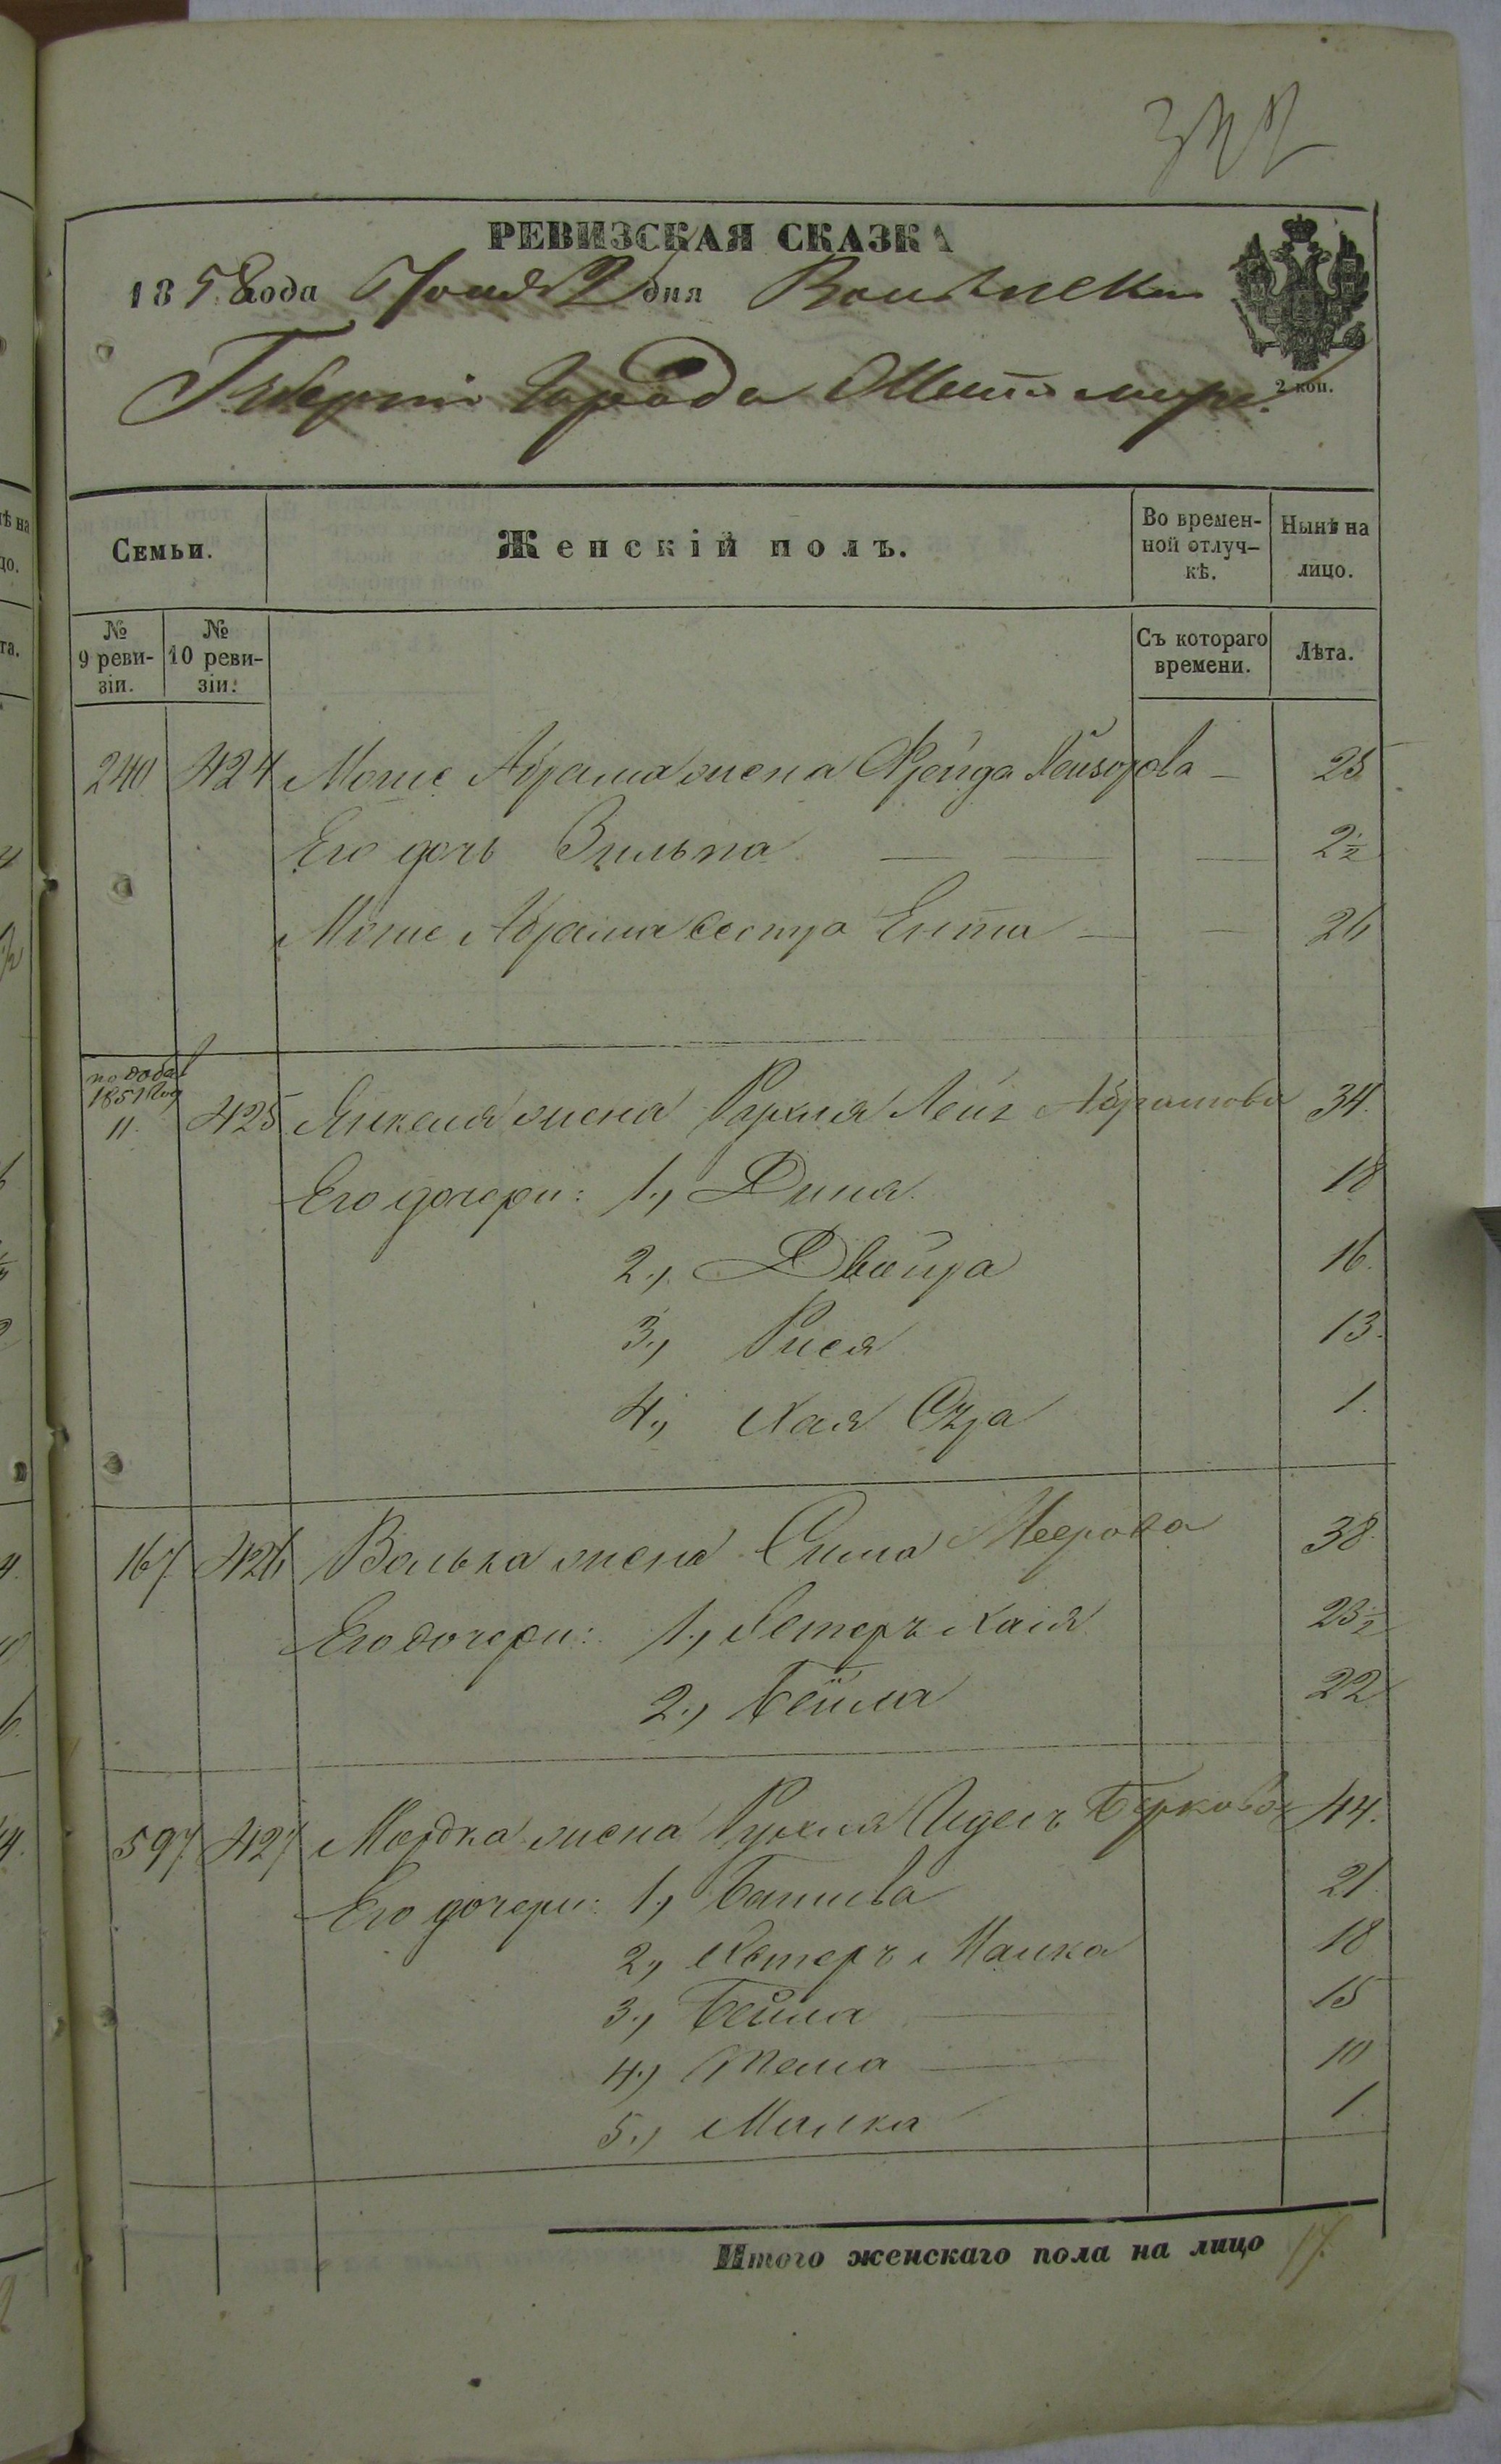 РЕВИЗСКАЯ СКАЗКА
1858 года Іюня 2 дня Волынской
Губерніи Города Житомира.
2 коп.
Семьи. Женскій полъ. Во времен- Нынѣ на
ной отлуч- лицо.
кѣ.
№ № Съ котораго Лѣта.
9 реви- 10 реви- времени.
зіи. зіи.
240 424 Моше Абрама жена Фрейда Лейзорова — 25
Его дочь Зильпа — — — 2½
Моше Абрама сестра Ента — — 26
по допол
1851 год
11. 425 Янкеля жена Рухля Лея Абрамова 34.
Его дочери: 1., Дина 18
2., Двойра 16.
3., Рися 13.
4., Хая Сура 1.
167 426 Волька жена Сима Меерова 38.
Его дочери: 1., Естеръ Хая 23½
2., Бейла 22
597 427 Мордка жена Рухля Идесъ Беркова 44.
Его дочери: 1., Батшева 21.
2., Естеръ Малка 18
3., Бейла — 15
4.) — 10
5., Малка 1.
Итого женскаго пола на лицо 17.